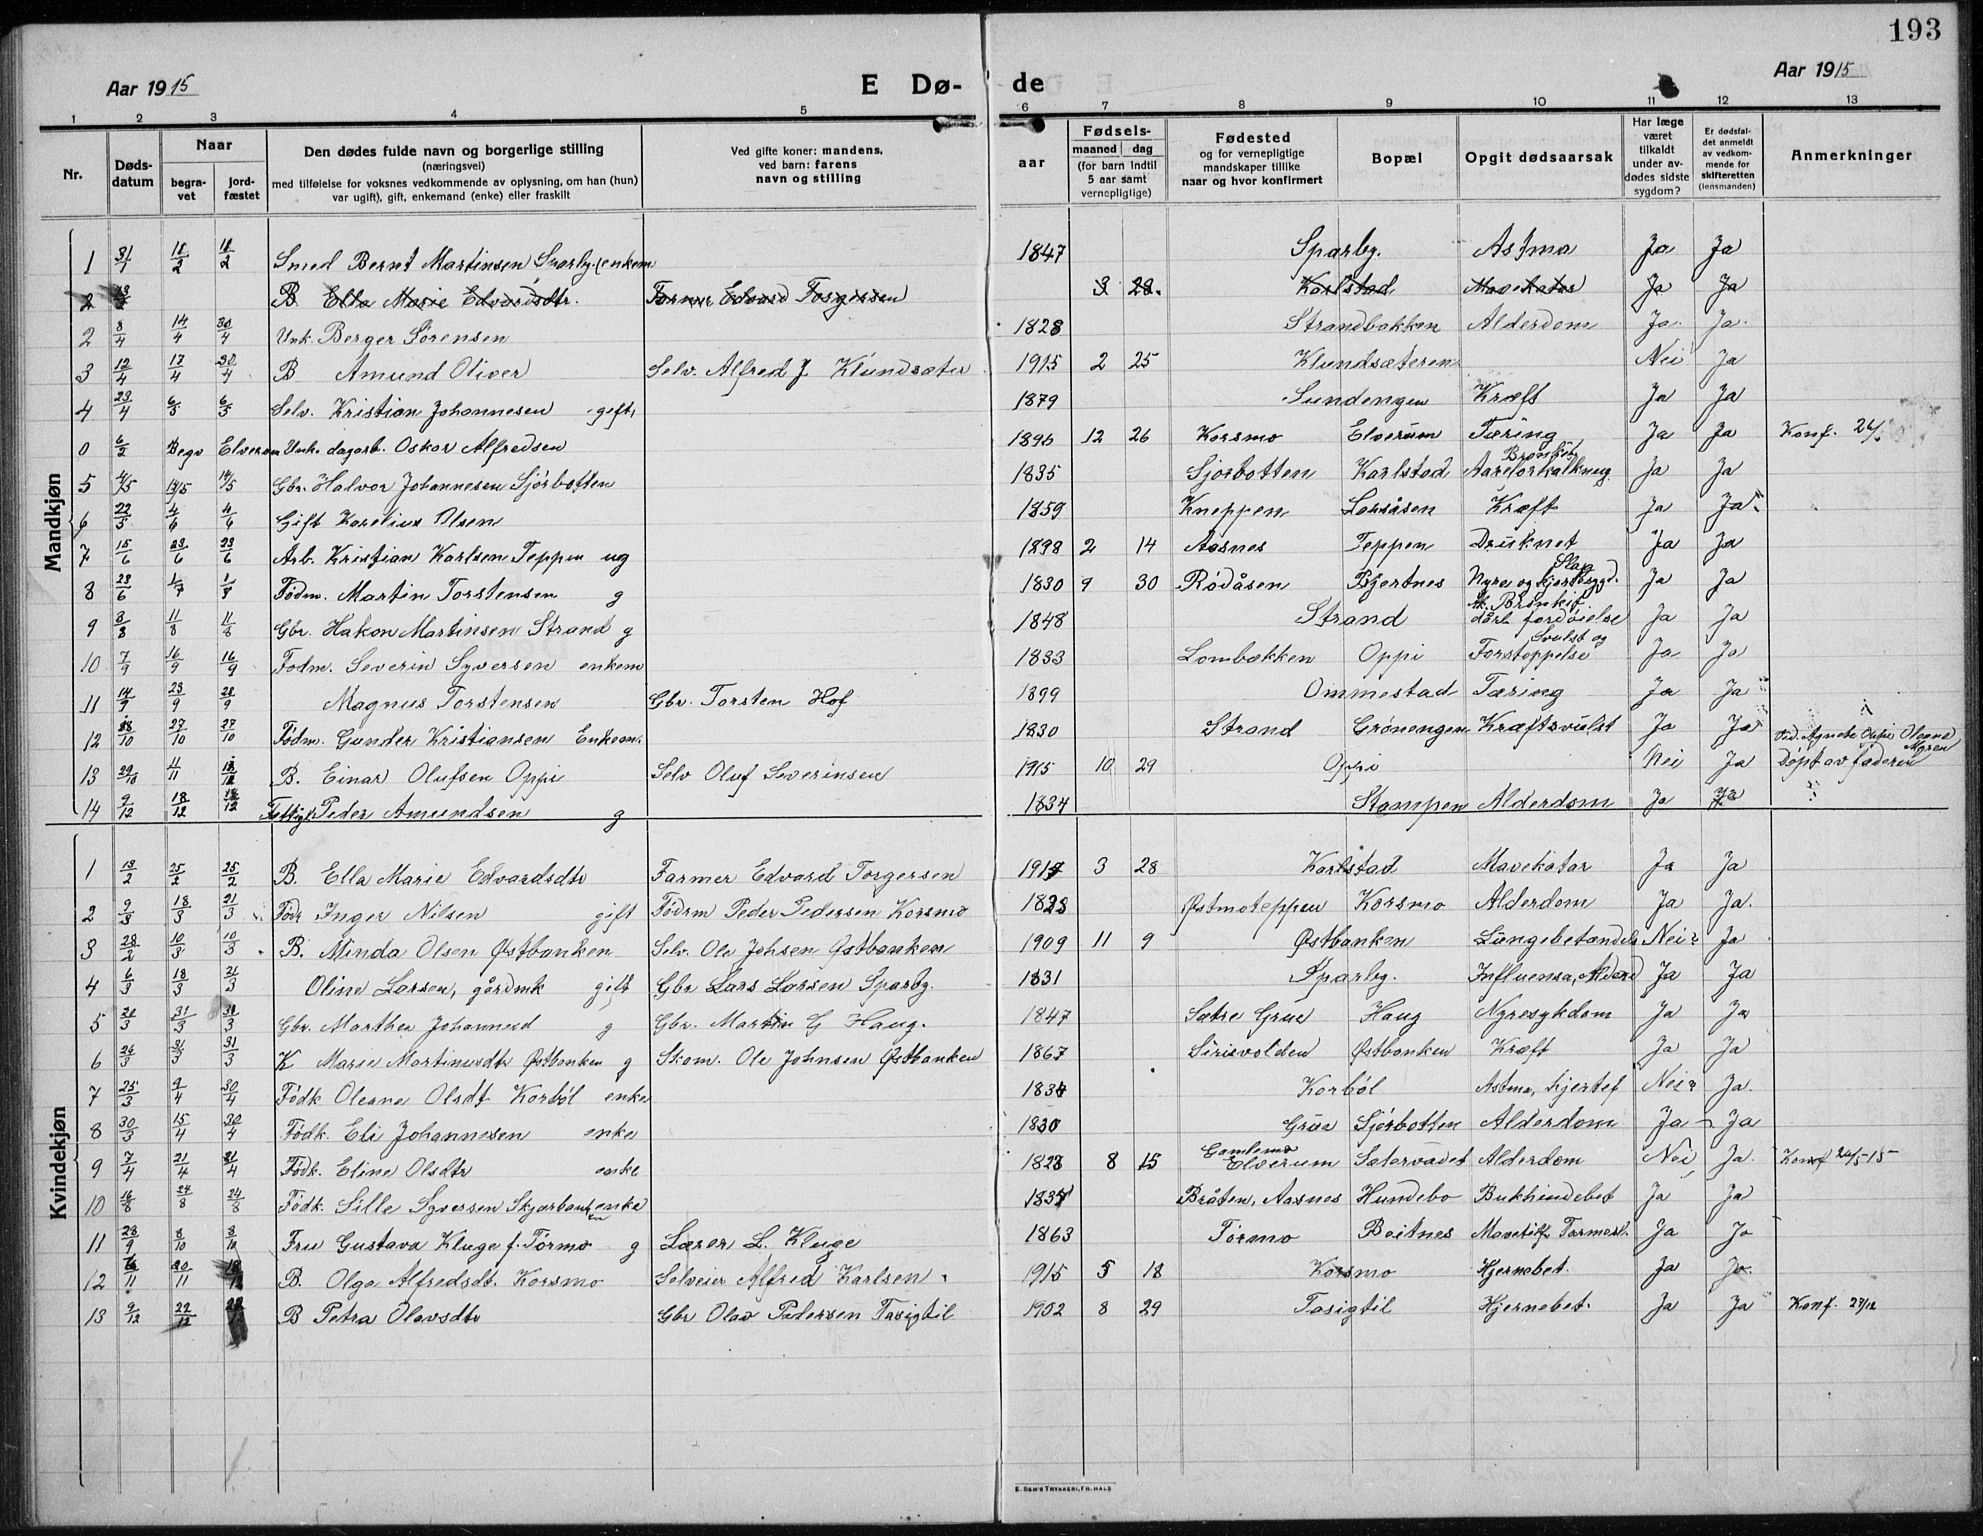 193
Aar 1915 E Dø- de Aar 1915
1 2 3 4 5 6 7 8 9 10 11 12 13
Nr. Døds-datum Naar begra-vet jord-fæstet Den dødes fulde navn og borgerlige stilling (næringsvei) med tilføielse for voksnes vedkommende av oplysning, om han (hun) var ugift), gift, enkemand (enke) eller fraskilt Ved gifte koner: mandens, ved barn: farens navn og stilling aar Fødsels- maaned dag (for barn indtil 5 aar samt vernepligtige) Fødested og for vernepligtige mandskaper tillike naar og hvor konfirmert Bopæl Opgit dødsaarsak Har læge været tilkaldt under av-dødes sidste sygdom? Er dødsfal-det anmeldt av vedkom-mende for skifteretten (lensmanden) Anmerkninger
Mandkjøn
1 31/1 18/2 18/2 Smed Bernt Martinsen Sparby (enkem 1847 Sparby. Astma Ja Ja
2 B Ella Marie Edvardsdtr. Farmer Edvard Torgersen 3 28. Karlstad Mavekatar Ja Ja
2 8/4 14/4 30/4 Unk. Berger Sørensen 1828 Strandbakken Alderdom Ja. Ja.
3 12/4 17/4 30/4 B Amund Oliver Selv. Alfred J. Klundsæter 1915 2 25 Klundsæteren Nei Ja
4 23/4 6/5 6/5 Selv. Kristian Johannesen gift, 1879 Sundengen Kræft Ja Ja
0 6/2 Begr Elverum Unk. dagarb. Oskar Alfredsen 1896 12 26 Korsmo Elverum Tæring Ja Ja Konf.
5 4/5 14/5 14/5 Gbr. Halvor Johannesen Sjörbotten 1835 Sjørbotten Karlstad Aareforkalkning Ja Ja
6 22/5 4/6 4/6 Gift Karelius Olsen 1859 Kneppen Lersåsen Kræft Ja Ja
7 15/6 23/6 23/6 Arb. Kristian Karlsen Teppen ug 1898 2 14 Aasnes Teppen Druknet Ja Ja
8 23/6 1/7 1/7 Födm. Martin Torstensen g 1830 9 30 Rödåsen Bjertnes Nyre og hjertesygd. Slag Ja Ja
9 3/8 11/8 11/8 Gbr. Hakon Martinsen Strand g 1848 Strand Ak. Bronkit dårl. fordöielse Ja Ja
10 7/9 16/9 16/9 Fødm. Severin Syversen enkem 1833 Lombækken Oppi Svulst og Forstoppelse Ja Ja
11 14/9 23/9 23/9 Magnus Torstensen Gbr. Torsten Hof 1899 Ommestad Tæring Ja Ja
12 18/10 27/10 27/10 Födm. Gunder Kristiansen Enkem. 1830 Strand Grönengen Kræftsvulst Ja Ja
13 29/10 11/11 B. Einar Olufsen Oppi Selv Oluf Severinsen 1915 10 29 Oppi Nei Ja Döpt av faderen
14 9/12 18/12 18/12 Fattigl. Peder Amundsen g 1834 Stampen Alderdom Ja Ja
Kvindekjøn
1 13/2 25/2 25/2 B. Ella Marie Edvardsdtr Farmer Edvard Torgersen 1914 3 28 Karlstad Mavekatar Ja Ja
2 9/3 18/3 21/3 Födr Inger Nilsen gift Födrm Peder Pedersen Korsmo 1823 Østmoteppen Korsmo Alderdom Ja Ja.
3 28/2 10/3 10/3 B. Minda Olsen Østbanken Selv. Ole Johsen Østbanken 1909 11 9 Østbanken Lungebetændels Nei? Ja
4 6/3 18/3 21/3 Oline Larsen, gårdmk gift Gbr Lars Larsen Sparby. 1831 Sparby. Influensa, Alderd Ja Ja
5 20/3 31/3 31/3 Gbr. Marthea Johannesd g Gbr. Martin G Haug. 1847 Sætre Grue Haug Nyresykdom Ja Ja
6 26/3 31/3 31/3 K Marie Martinusdtr Østbanken g Skom. Ole Johnsen Østbanken 1867 Sirisvolden Østbanken Kræft Ja Ja
7 25/3 9/4 30/4 Födk Oleane Olsdt Korböl enke 1834 Korböl Astma, hjertef Nei? Ja.
8 30/3 15/4 30/4 Födk. Eli Johannesen enke 1830 Grue Sjörbotten Alderdom Ja Ja
9 7/4 21/4 21/4 Födk. Eline Olsdtr enke 1828 8 15 Gamlemo Elverum Sætervadet Alderdom Nei Ja. Konf 24/5-15
10 16/8 24/8 24/8 Födk. Sille Syversen Skjærbanken enke 1834 Bråten, Aasnes Hundebo Bukhindebet Ja Ja
11 28/9 8/10 8/10 Fru Gustava Kluge f. Törmo g Lærer L. Kluge 1863 Törmo Beitnes Ja Ja
12 20/11 B. Olga Alfredsdt. Korsmo Selveier Alfred Karlsen 1915 5 18 Korsmo Hjernebet. Ja Ja.
13 9/12 22/12 B Petra Olavsdtr Gbr Olav Pedersen Tasigtil 1902 8 29 Tasigtil Hjernebet. Ja Ja Konf. 27/12
E. SEM'S TRYKKERI, FR.HALD